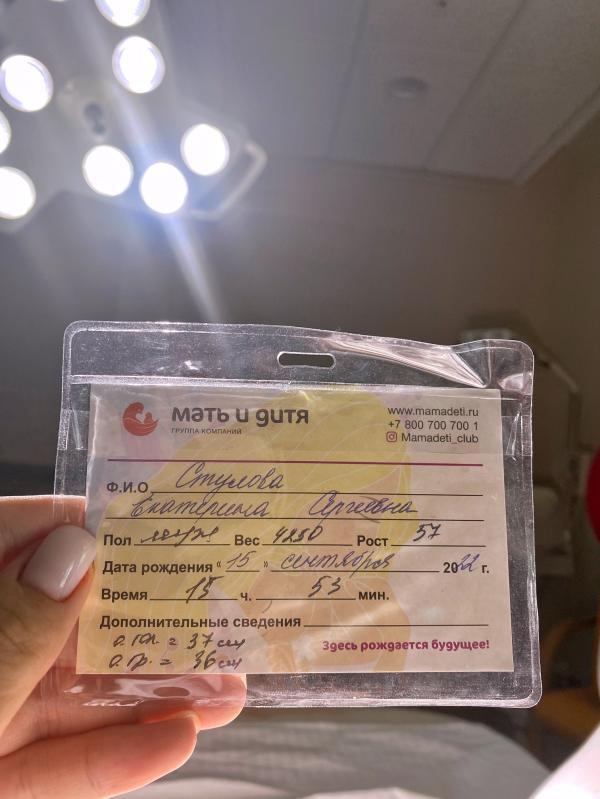 мать и дитя
ГРУППА КОМПАНИЙ
www.mamadeti.ru
+7 800 700 700 1
Mamadeti_club
Ф.И.О Стулова
Екатерина Сергеевна
Пол муж Вес 4250 Рост 57
Дата рождения "15" сентября 2022 г.
Время 15 ч. 53 мин.
Дополнительные сведения
о.гол. = 37 см
о.гр. = 36 см
Здесь рождается будущее!